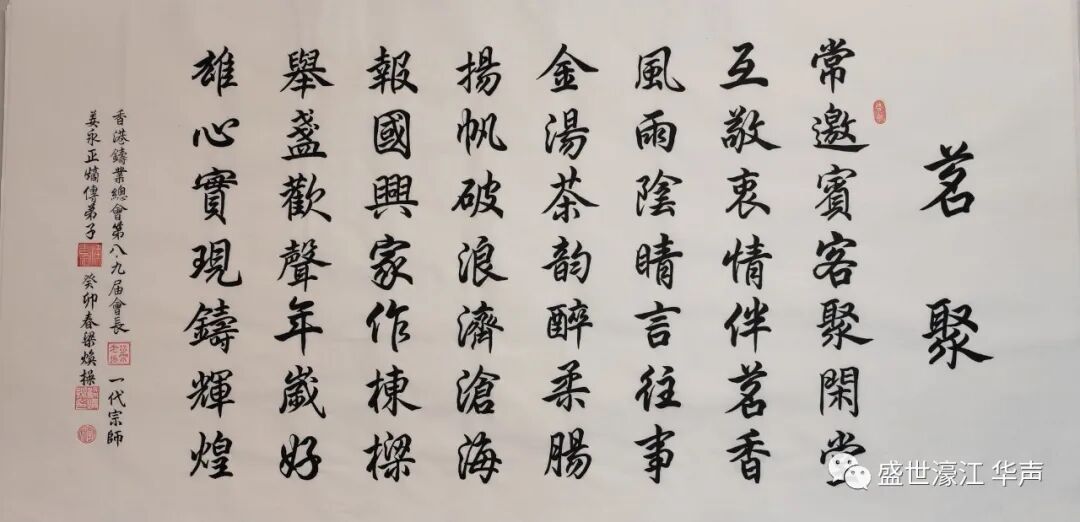 茗聚
常邀賓客聚閑堂
互敬衷情伴茗香
風雨陰晴言往事
金湯茶韵醉柔腸
揚帆破浪濟滄海
報國興家作棟樑
舉盞歡聲年歲好
雄心實現鑄輝煌
香港鑄業總會第八·九届會長 一代宗師
姜永正嫡傳弟子 癸卯春梁煥操
盛世濠江 华声